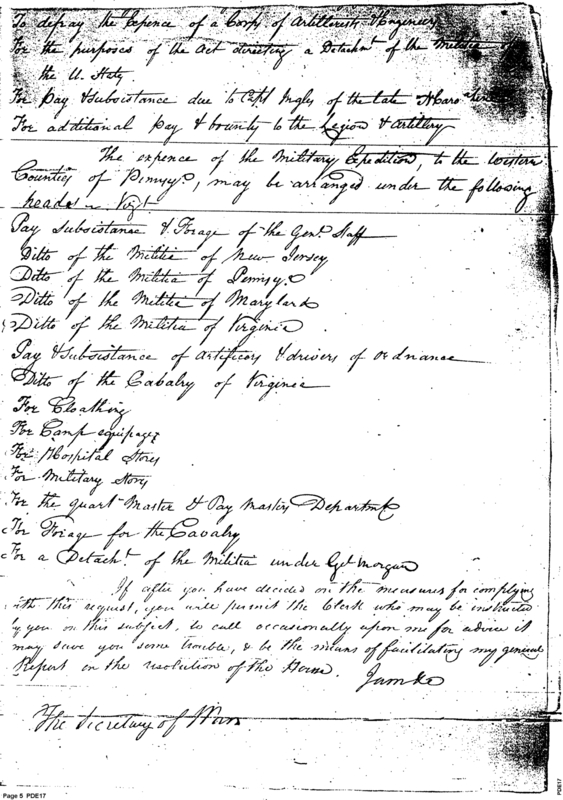 To defray the Expence of a Corps of Artillerists & Engineers
For the purposes of the Act directing a Detachmt of the Militia
the U. States
For Pay & Subsistance due to Capt of the late
For additional Pay & bounty to the Legion & Artillery
The expence of the Military Expedition, to the western
Counties of Pennsya, may be arranged under the following
heads Vizt
Pay Subsistance & Forage of the Genl Staff
Ditto of the Militia of New Jersey
Ditto of the Militia of Pennsya
Ditto of the Militia of Maryland
Ditto of the Militia of Virginia
Pay & Subsistance of Artificers & drivers of Ordnance
Ditto of the Cavalry of Virginia
For Cloathing
For Camp equipage
For Hospital Stores
For Military Stores
For the quartr Master & Pay Masters Departmt
For Forage for the Cavalry
For a Detacht of the Militia under Gel Morgan
If after you have decided on the measures for complying
with this request, you will permit the Clerk who may be instructed
by you on this subject, to call occasionally upon me for advice it
may save you some trouble, & be the means of facilitating my general
Report on the resolution of the House. I am &c
The Secretary of War
Page 5 PDE17
PDE17